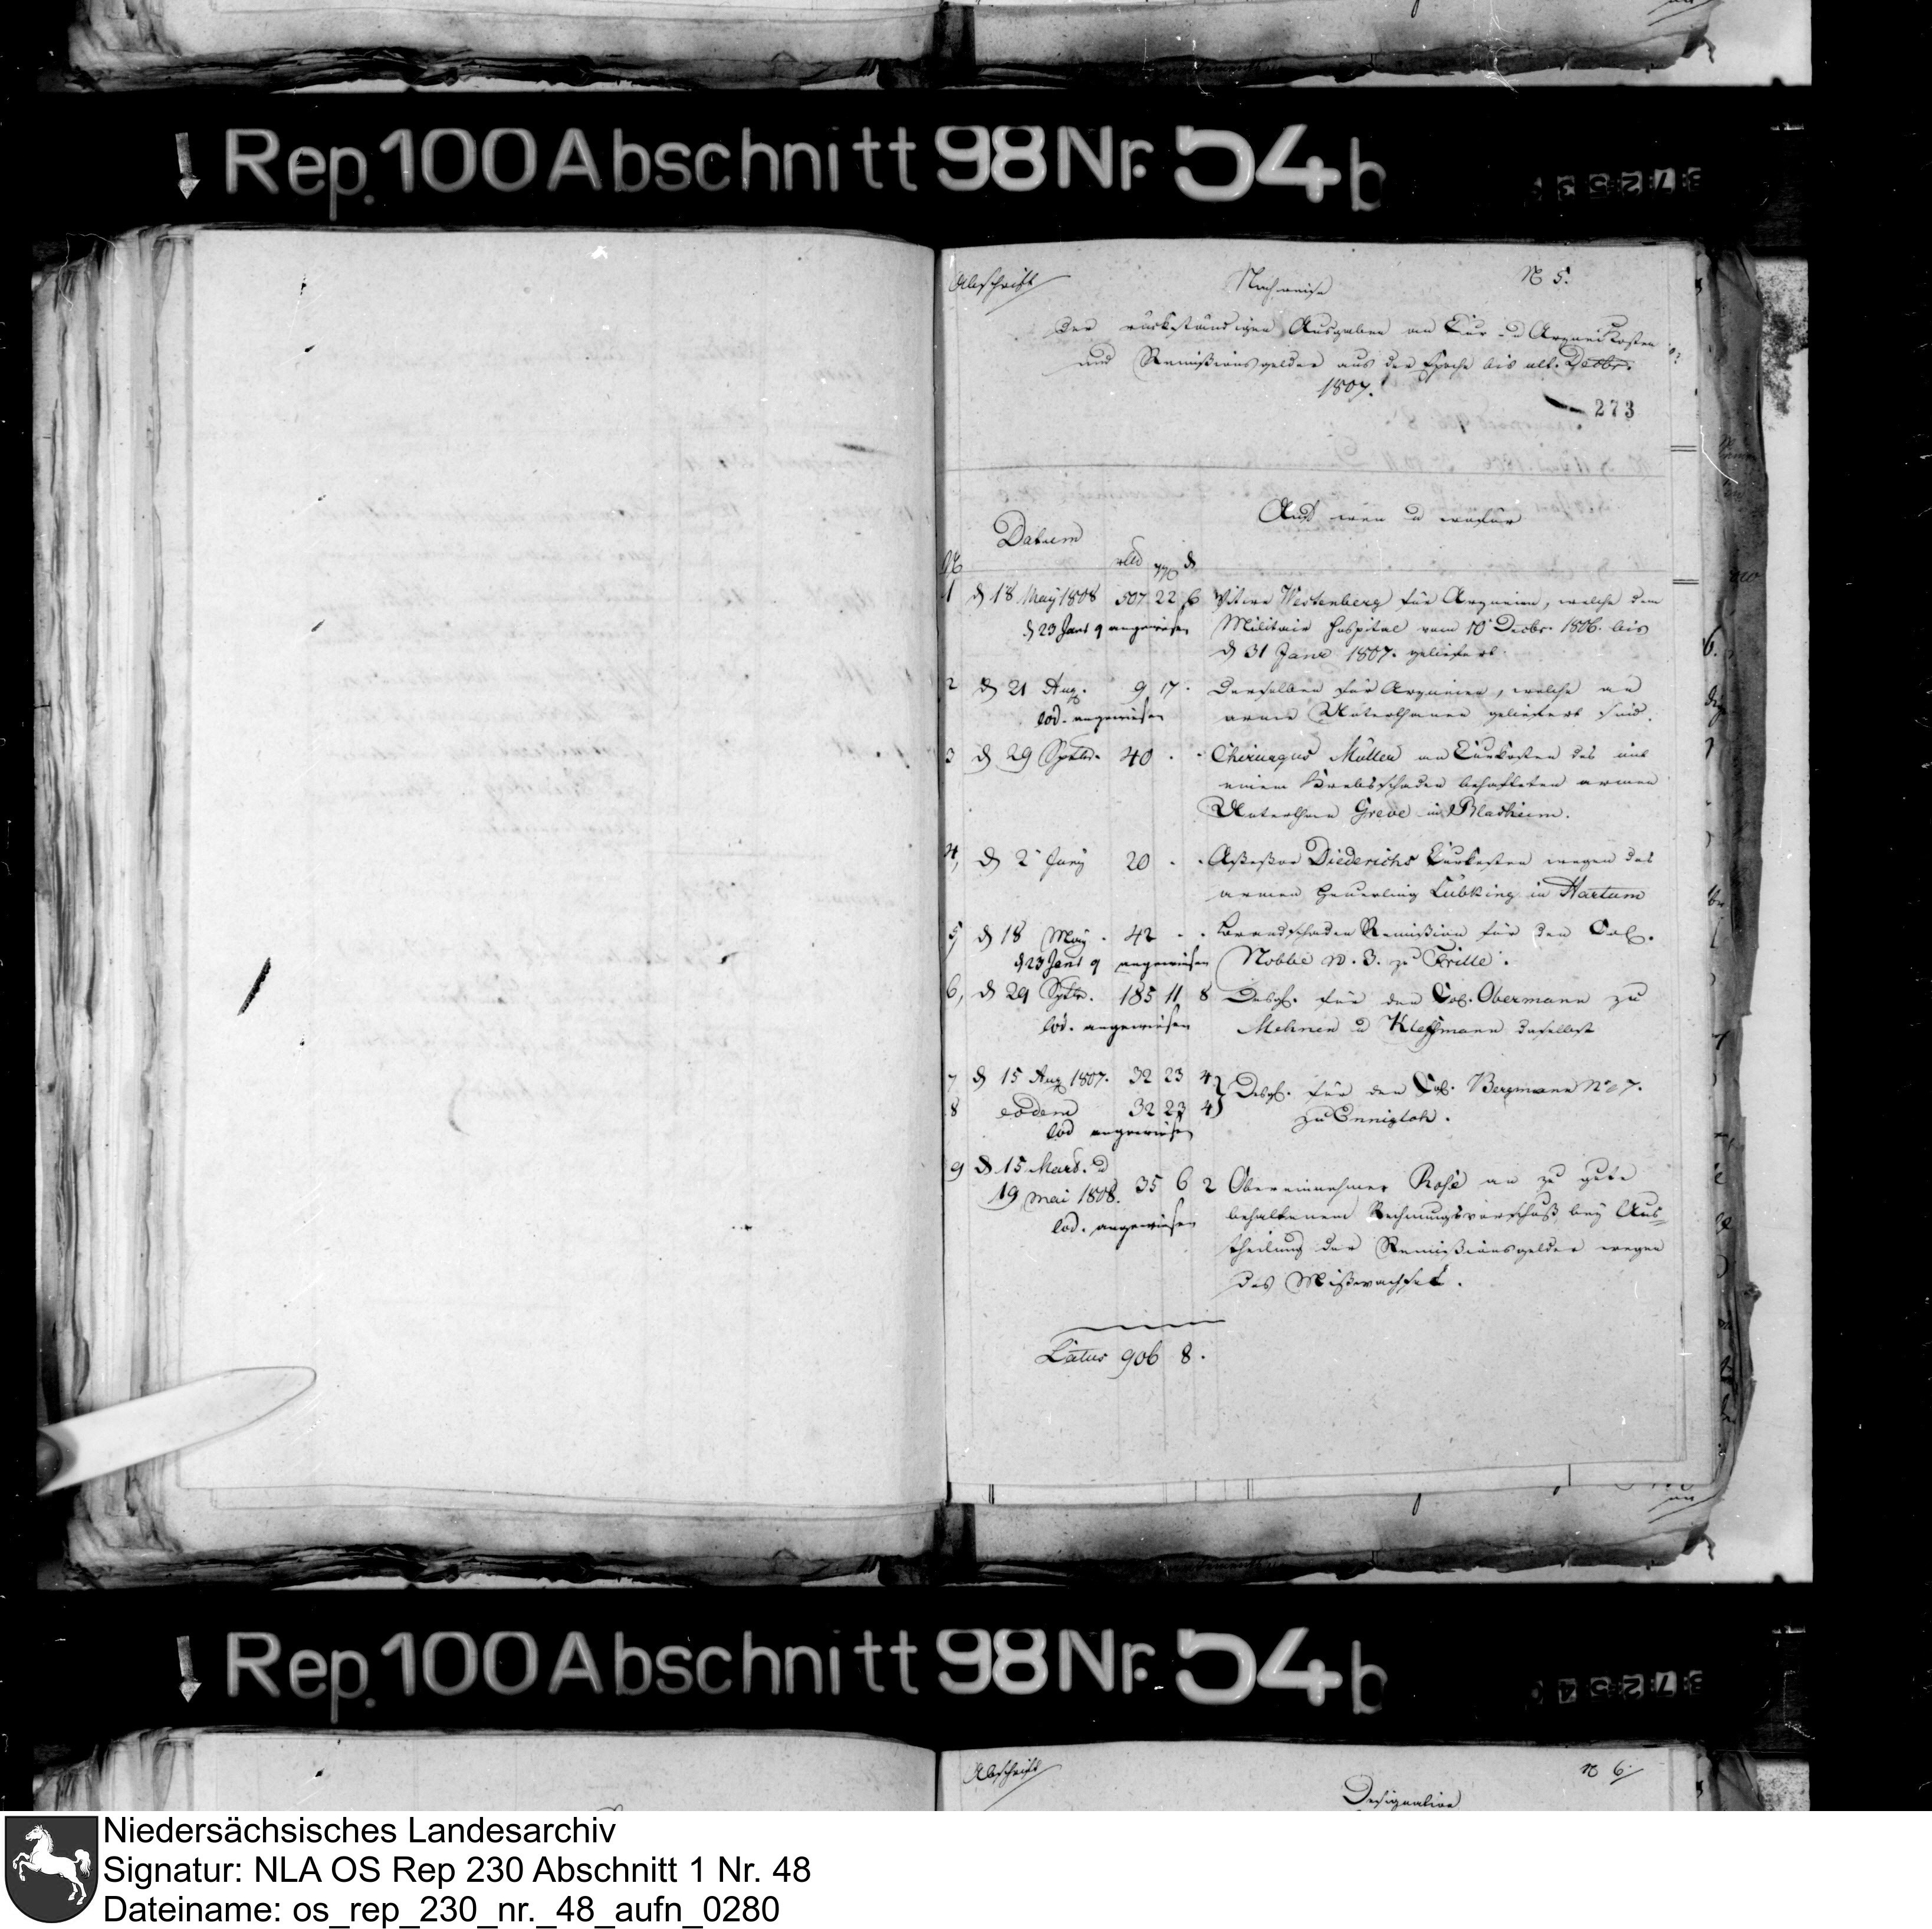 Rep. 100 Abschnitt 98 Nr. 54 b
Abschrift
Nachweise
N 5.
der rückständigen Ausgaben an Cur u Arzneikosten
und Remißionsgelder aus der Epoche bis ult. Decbr.
1807.
273
Datum
Auf wen u wofür
N rtl d
1 d 18 May 1808 507 22 6 Witwe Westenberg für Arzneien, welche dem
d 23 Janr 9 angewiesen Militair Hospital vom 10 Decbr. 1806. bis
d 31 Janr 1807. geliefert.
2 d 21 Aug. 9 17 . Derselben für Arzneien, welche an
eod. angewiesen arme Unterthanen geliefert sind.
3 d 29 Septbr. 40 . . Chirurgus Müller an Curkosten des mit
einem Krebsschaden behafteten armen
Unterthan Greve in Blasheim.
4, d 2 Juny 20 . . Aßeßor Diederichs Curkosten wegen des
armen Heuerling Lübking in Hartum
5, d 18 May . 42 . . Brandschaden Remißion für den Col.
d 23 Janr 9 angewiesen Nobbe N. 3. zu Frille.
6, d 29 Septbr. 185 11 8 Desgl. für den Col. Obermann zu
eod. angewiesen Mehnen u Kleffmann daselbst
7 d 15 Aug 1807. 32 23 4 Desgl. für den Col. Bergmann No 7.
8 eodem 32 23 4 zu Ennigloh.
eod angewiesen
9 d 15 Mart. u
19 mai 1808. 35 6 2 Obereinnehmer Rose an zu gute
eod. angewiesen behaltenem Rechnungsvorschuß bey Aus=
theilung der Remißionsgelder wegen
des Mißwachses.
Latus 906 8 .
Rep. 100 Abschnitt 98 Nr. 54 b
Abschrift
N 6.
Designation
Niedersächsisches Landesarchiv
Signatur: NLA OS Rep 230 Abschnitt 1 Nr. 48
Dateiname: os_rep_230_nr._48_aufn_0280